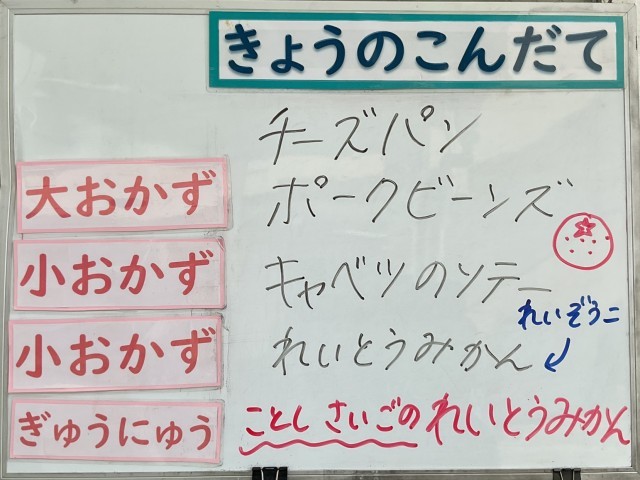 きょうのこんだて
チーズパン
大おかず ポークビーンズ
小おかず キャベツのソテー
れいぞうこ
小おかず れいとうみかん
ぎゅうにゅう
ことし さいごの れいとうみかん